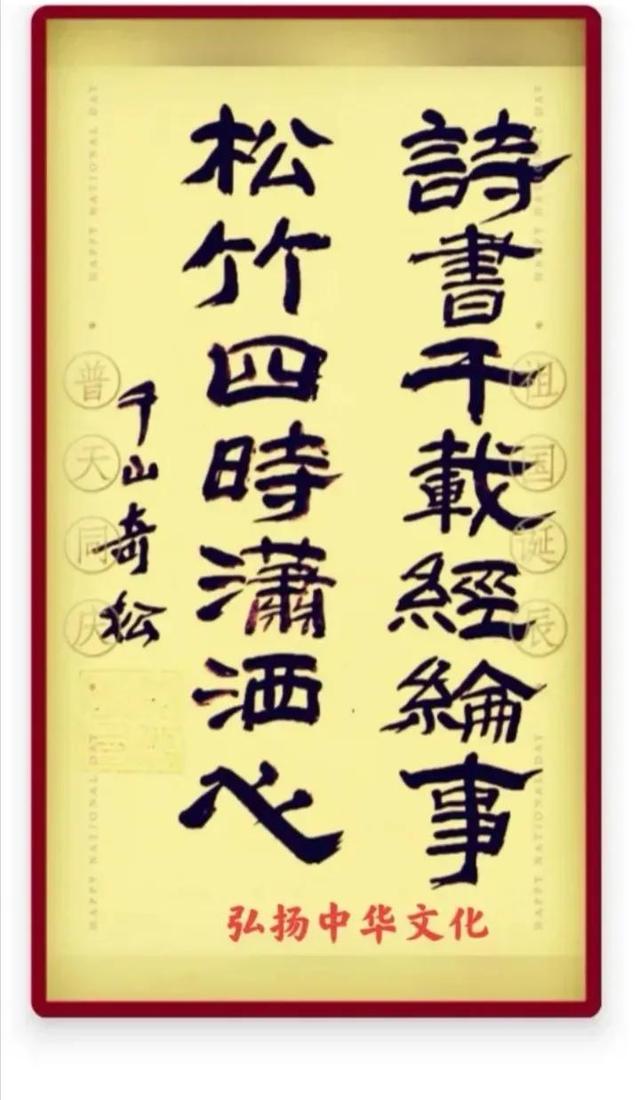 詩書千載經綸事
松竹四時瀟洒心
千山奇松
祖国诞辰
普天同庆
HAPPY NATIONAL DAY
HAPPY NATIONAL DAY
HAPPY NATIONAL DAY
HAPPY NATIONAL DAY
弘扬中华文化